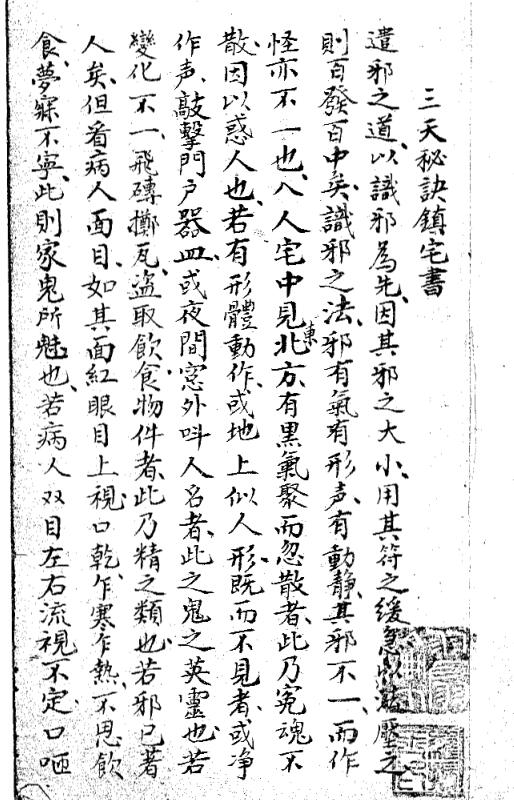 三天秘訣鎮宅書
遣邪之道、以識邪為先、因其邪之大小、用其符之緩急以法壓之
則百發百中矣、識邪之法、邪有氣有形声、有動靜、其邪不一、而作
怪亦不一也、入人宅中見東北方、有黑氣聚而忽散者、此乃冤魂不
散、因以惑人也、若有形體動作、或地上似人形、既而不見者、或净
作声、敲擊門户器皿、或夜間窓外呌人名者、此之鬼之英靈也、若
變化不一、飛磚擲瓦、盜取飲食物件者、此乃精之類也、若邪已著
人矣、但看病人面目、如其面紅眼目上視、口乾、乍寒乍熱、不思飲
食、夢寐不寧、此則家鬼所魅也、若病人双目左右流視不定、口咂